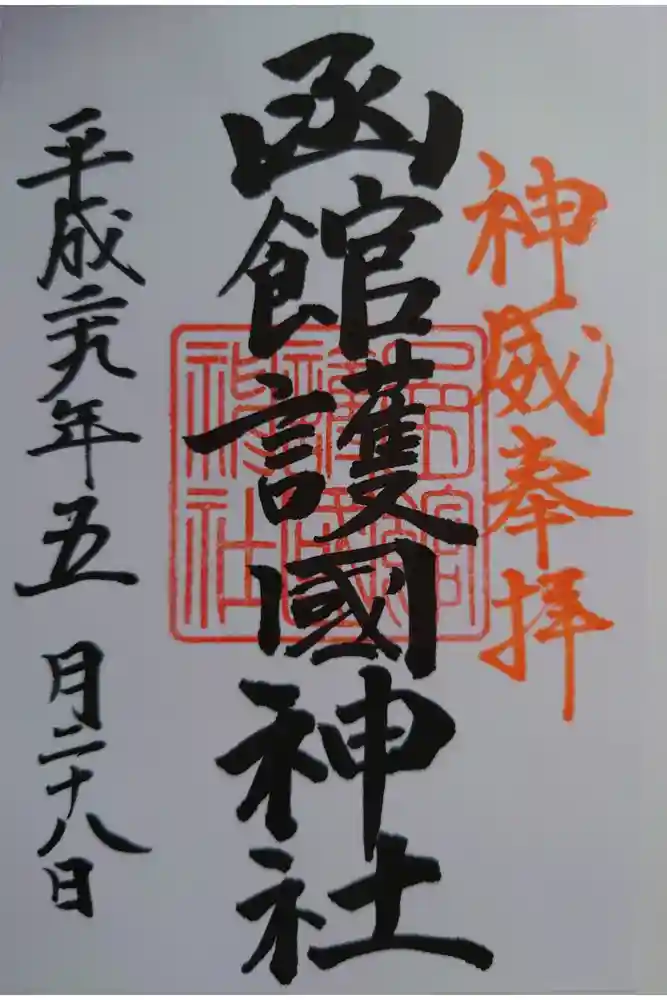 神威奉拝
函館護國神社
函館
護國
神社
平成二十九年五月二十八日